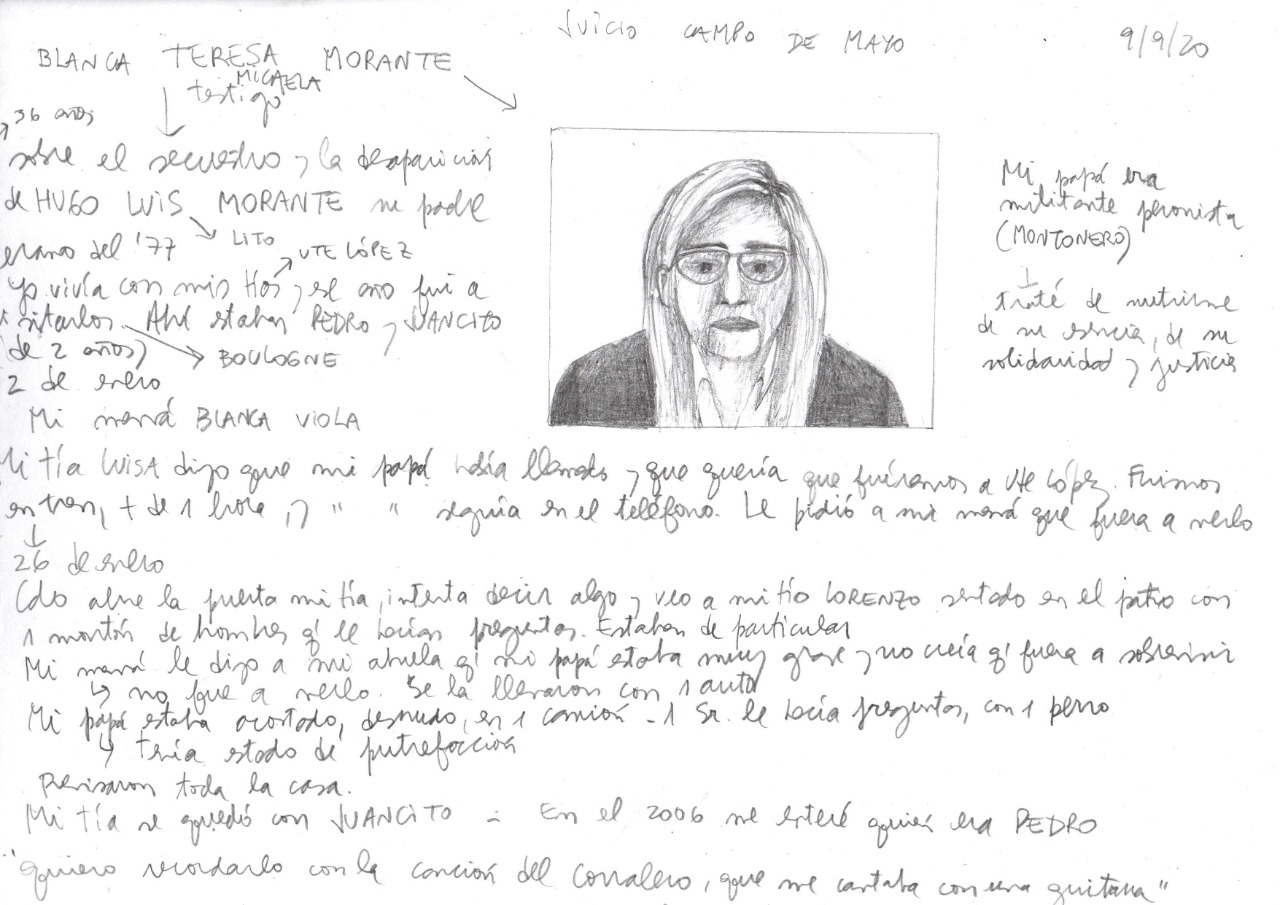 JUICIO CAMPO DE MAYO
9/9/20
BLANCA TERESA MORANTE
MICAELA
testigo
36 años
sobre el secuestro y la desaparición
de HUGO LUIS MORANTE mi padre
verano del '77
LITO
VTE LÓPEZ
Yo vivía con mis tíos y ese año fui a
visitarlos. Ahí estaban PEDRO y JUANCITO
(de 2 años)
BOULOGNE
2 de enero
Mi mamá BLANCA VIOLA
Mi papá era
militante peronista
(MONTONERO)
traté de nutrirme
de su esencia, de su
solidaridad y justicia
Mi tía LUISA dijo que mi papá había llamado y que quería que fuéramos a Vte López. Fuimos
en tren, + de 1 hora, y " " seguía en el teléfono. Le pidió a mi mamá que fuera a verlo
26 de enero
Cdo abre la puerta mi tía, intenta decir algo y veo a mi tío LORENZO sentado en el patio con
1 montón de hombres q' le hacían preguntas. Estaban de particular
Mi mamá le dijo a mi abuela q' mi papá estaba muy grave y no creía q' fuera a sobrevivir
no fue a verlo. Se la llevaron con 1 auto
Mi papá estaba acostado, desnudo, en 1 camión - 1 Sr. le hacía preguntas, con 1 perro
tenía estado de putrefacción
Revisaron toda la casa.
Mi tía se quedó con JUANCITO - En el 2006 me enteré quién era PEDRO
"quiero recordarlo con la canción del Corralero, que me cantaba con una guitarra"